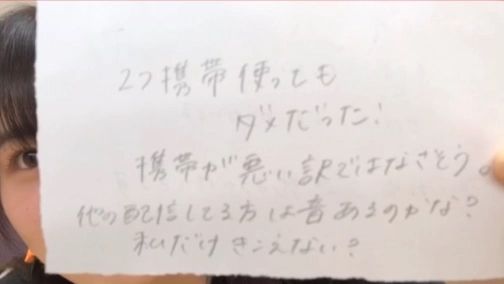 2つ携帯使っても
ダメだった！
携帯が悪い訳ではなさそう。
他の配信してる方は音あるのかな？
私だけきこえない？